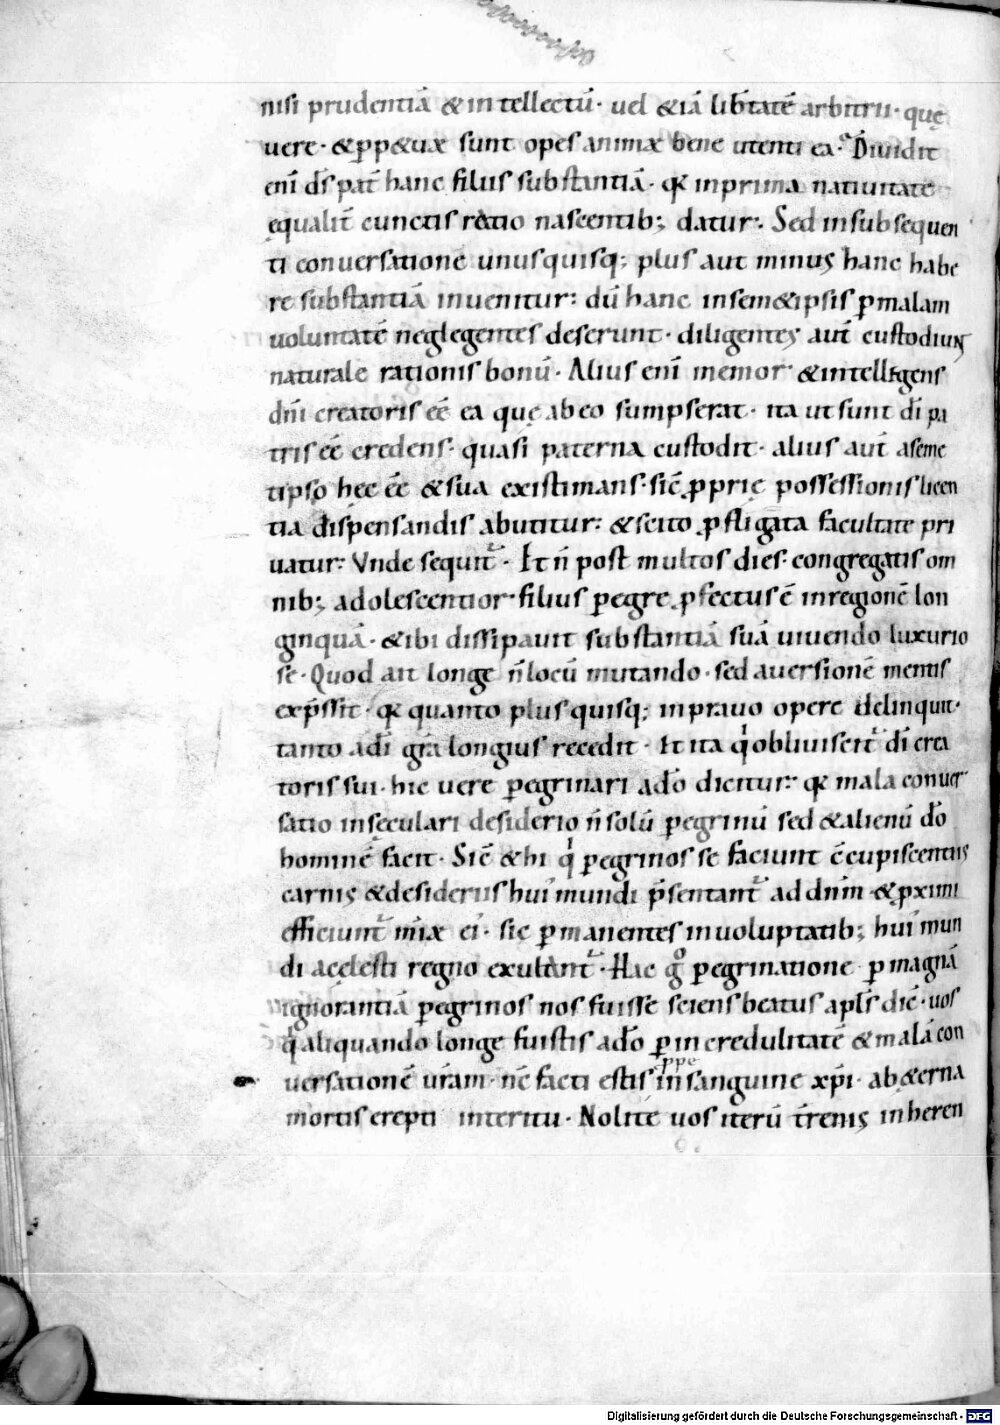 nisi prudentiā & intellectū· uel &iā lib̄tatē arbitrii· quę
uere· & ꝑp&uæ sunt opes animæ bene utenti ea· Diuidit
eni̅ d̅s pat̅ hanc filiis substantiā· q̅a in prima natiuitate
ęqualit̅ cunctis ratio nascentib; datur· Sed in subsequen
ti conuersatione̅ unusquisq; plus aut minus hanc habe
re substantiā inuenitur: dū hanc insem&ipsis ꝑ malam
uoluntatē neglegentes deserunt· diligentes aut̅ custodiunt
naturale rationis bonū· Alius eni̅ memor & intellegens
dn̅i creatoris ee̅ ea quę ab eo sumpserat· ita ut sunt di̅ pa
tris ee̅ credens· quasi paterna custodit· alius aut̅ a seme
tipso hęc ee̅ & sua existimans· sic̅ ꝓprię possessionis licen
tia dispensandis abutitur: & scito ꝓfligata facultate pri
uatur: Vnde sequit᷑· Et n̅ post multos dies· congregatis om
nib; adolescentior filius peregre ꝓfectus ē in regionē lon
ginquā· & ibi dissipauit substantiā suā uiuendo luxurio
se· Quod ait longe n̅ locū mutando· sed auersionē mentis
exp̅ssit· q̅a quanto plus quisq; in prauo opere delinquit·
tanto a di̅ gr̅a longius recedit· Et ita q̇ obliuiscit᷑ di̅ crea
toris sui· hic uere ꝑegrinari a do̅ dicitur: q̅a mala conuer
satio in sęculari desiderio n̅ solū ꝑegrinū sed & alienū do̅
hominē facit· Sic̅ & hi q̇ ꝑegrinos se faciunt c̅cupiscentiis
carnis & desideriis hui' mundi p̅sentant᷑ ad dn̅m· & ꝓximi
efficiunt᷑ mi̅æ ei'· sic ꝑmanentes in uoluptatib; hui' mun
di a cęlesti regno exulant᷑· Hac gͦ ꝑegrinatione ꝑ magnā
ignorantiā ꝑegrinos nos fuisse sciens beatus apl̅s dic̅· uos
q̇ aliquando longe fuistis a do̅ ꝑ incredulitatē & malā con
uersationē ur̅am· nc̅ facti estis ppe
in sanguine xp̅i· ab &erna
mortis erepti interitu· Nolite uos iterū t̅renis inheren